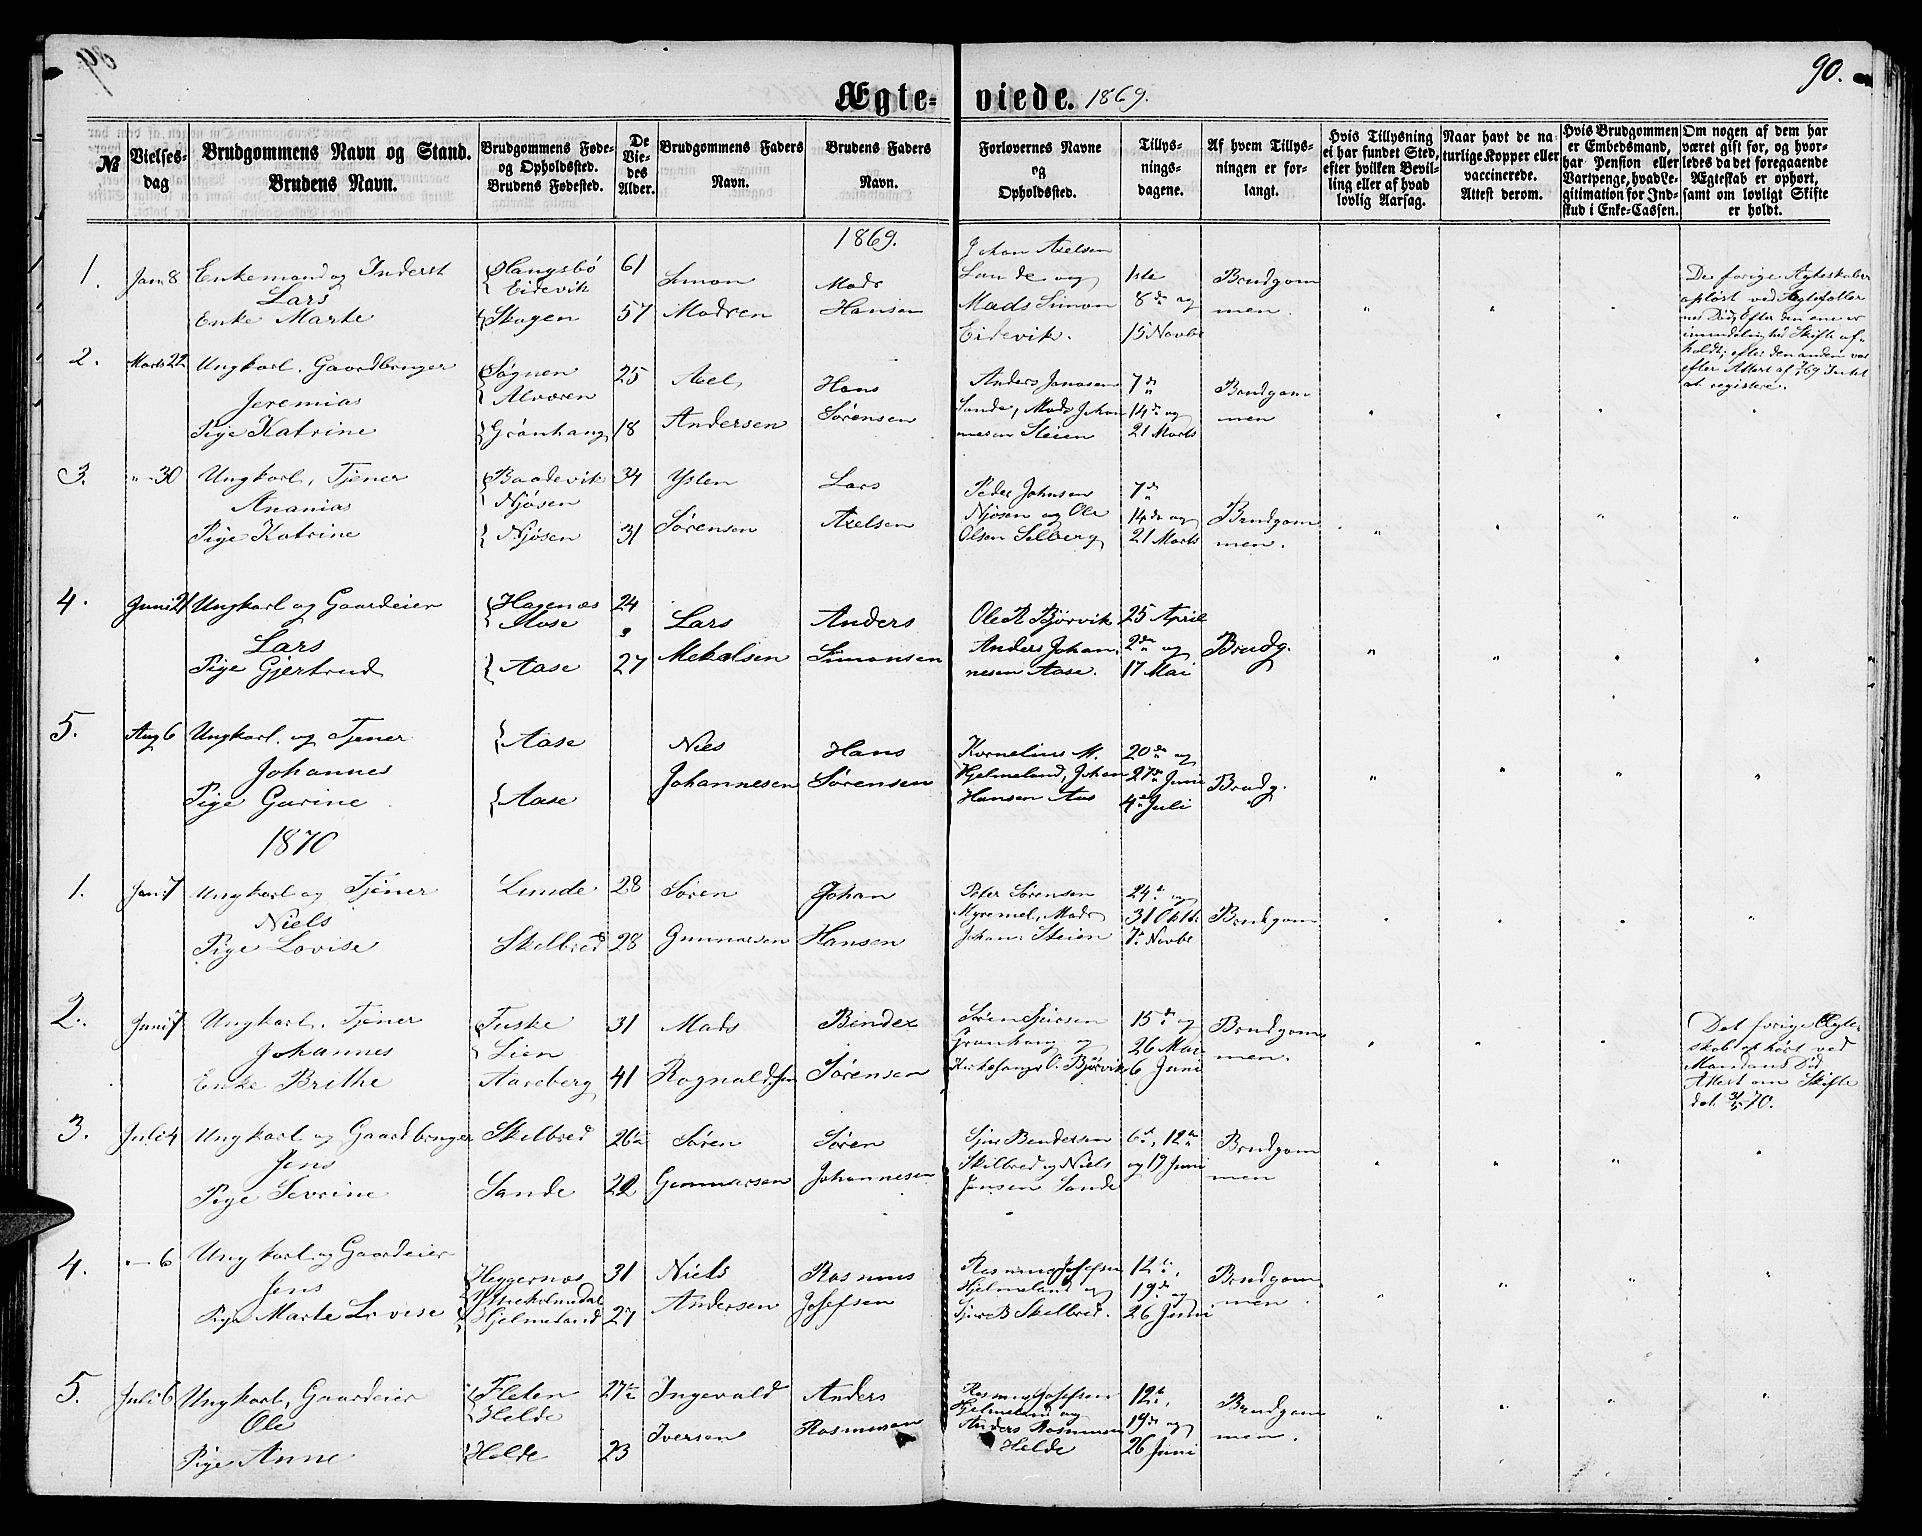 90.
Ægte- viede. 1869.
№
Vielses-
dag
Brudgommens Navn og Stand.
Brudens Navn.
Brudgommens Føde-
og Opholdssted.
Brudens Fødested.
De
Vie-
des
Alder.
Brudgommens Faders
Navn.
Brudens Faders
Navn.
Forlovernes Navne
og
Opholdssted.
Tillys-
nings-
dagene.
Af hvem Tillys-
ningen er for-
langt.
Hvis Tillysning
ei har fundet Sted,
efter hvilken Bevil-
ling eller af hvad
lovlig Aarsag.
Naar havt de na-
turlige Kopper eller
vaccinerede.
Attest derom.
Hvis Brudgommen
er Embedsmand,
har Pension eller
Vartpenge, hvad Le-
gitimation for Ind-
skud i Enke-Cassen.
Om nogen af dem har
været gift før, og hvor-
ledes da det foregaaende
Ægteskab er ophørt,
samt om lovligt Skifte
er holdt.
1869.
1. Jan 8 Enkemand og Inderst
Lars
Enke Marte
Hangsbø
Eidevik
Skogen
61
57
Simon
Madsen
Mads
Hansen
Johan Axelsen
Lunde og
Mads Simon
Eidevik.
1ste
8de og
15 Novbr
Brudgom
men.
De forige Ægteskaber
opløst ved Ægtefæller
nes Død. Efter den ene er
Skifte af-
holdt; efter den anden var
efter Attest af 7/1 69 Intet
at registere.
2. Marts 22 Ungkarl. Gaardbruger
Jeremias
Pige Katrine
Sognen
Alværen
Grønhaug
25
18
Axel
Andersen
Hans
Sørensen
Anders Jonasen
Sande, Mads Johan
nesen Steien
7de
14de og
21 Marts
Brudgom
men
3. " 30 Ungkarl, Tjener
Ananias
Pige Katrine
Baadevik
Njøsen
Njøsen
34
31
Ysten
Sørensen
Lars
Axelsen
Peder Johnsen
Njøsen og Ole
Olsen Solberg
7de
14de og
21 Marts
Brudgom
men.
4. Juni 21 Ungkarl og Gaardeier
Lars
Pige Gjertrud
Hagenæs
Aase
Aase
24
27
Lars
Mekalsen
Anders
Simonsen
Ole R Bjørvik
Anders Johan
nesen Aase.
25 April
2den og
17 Mai
Brudg.
5. Aug 6 Ungkarl. og Tjener
Johannes
Pige Gurine
Aase
Aase
Niels
Johannesen
Hans
Sørensen
Kornelius M.
Hjelmeland, Johan
Hansen Aas
20de og
27de Juni
4de Juli
Brudg.
1870
1. Jan 7 Ungkarl og Tjener
Niels
Pige Lovise
Lunde
Skelbred
28
28
Søren
Gunnarsen
Johan
Hansen
Peter Sørensen
Myremel, Mads
Johan: Steien
24de og
31 Oktbr
7de Novbr
Brudgom
2. Juni 7 Ungkarl. Tjener
Johannes
Enke Brithe
Fuske
Lien
Aareberg
31
41
Mads
Ragnaldsen
Bendix
Sørensen
Søren Sjursen
Grønhaug og
Kirkesanger O. Bjørvik
15de og
26 Mai
6 Juni
Brudgom
men.
Det forige Ægte-
skab ophørt ved
Mandens Død
Attest om Skifte
dat. 3/5 70.
3. Juli 4 Ungkarl og Gaardbruger
Jens
Pige Sevrine
Skelbred
Sande
26½
22
Søren
Gunnarsen
Søren
Johannesen
Sjur Bendixsen
Skilbred og Niels
Jensen Sande
6te, 12te
og 19 Juni
Brudgom
men
4. " 6 Ungkarl og Gaardeier
Jens
Pige Marte Lovise
Heggernæs
Hjelmeland
31
27
Niels
Andersen
Rasmus
Josefsen
Rasmus Josefsen
Hjelmeland og
Sjur B Skelbred.
12te,
19de og
26 Juni
Brudgom
men.
5. Juli 6 Ungkarl, Gaardeier
Ole
Pige Anne
Fleten
Helde
Helde
27½
23
Ingevald
Iversen
Anders
Rasmusen
Rasmus Josefsen
Hjelmeland og
Anders Rasmusen
Helde
12te,
19de og
26 Juni
Brudgom
men.